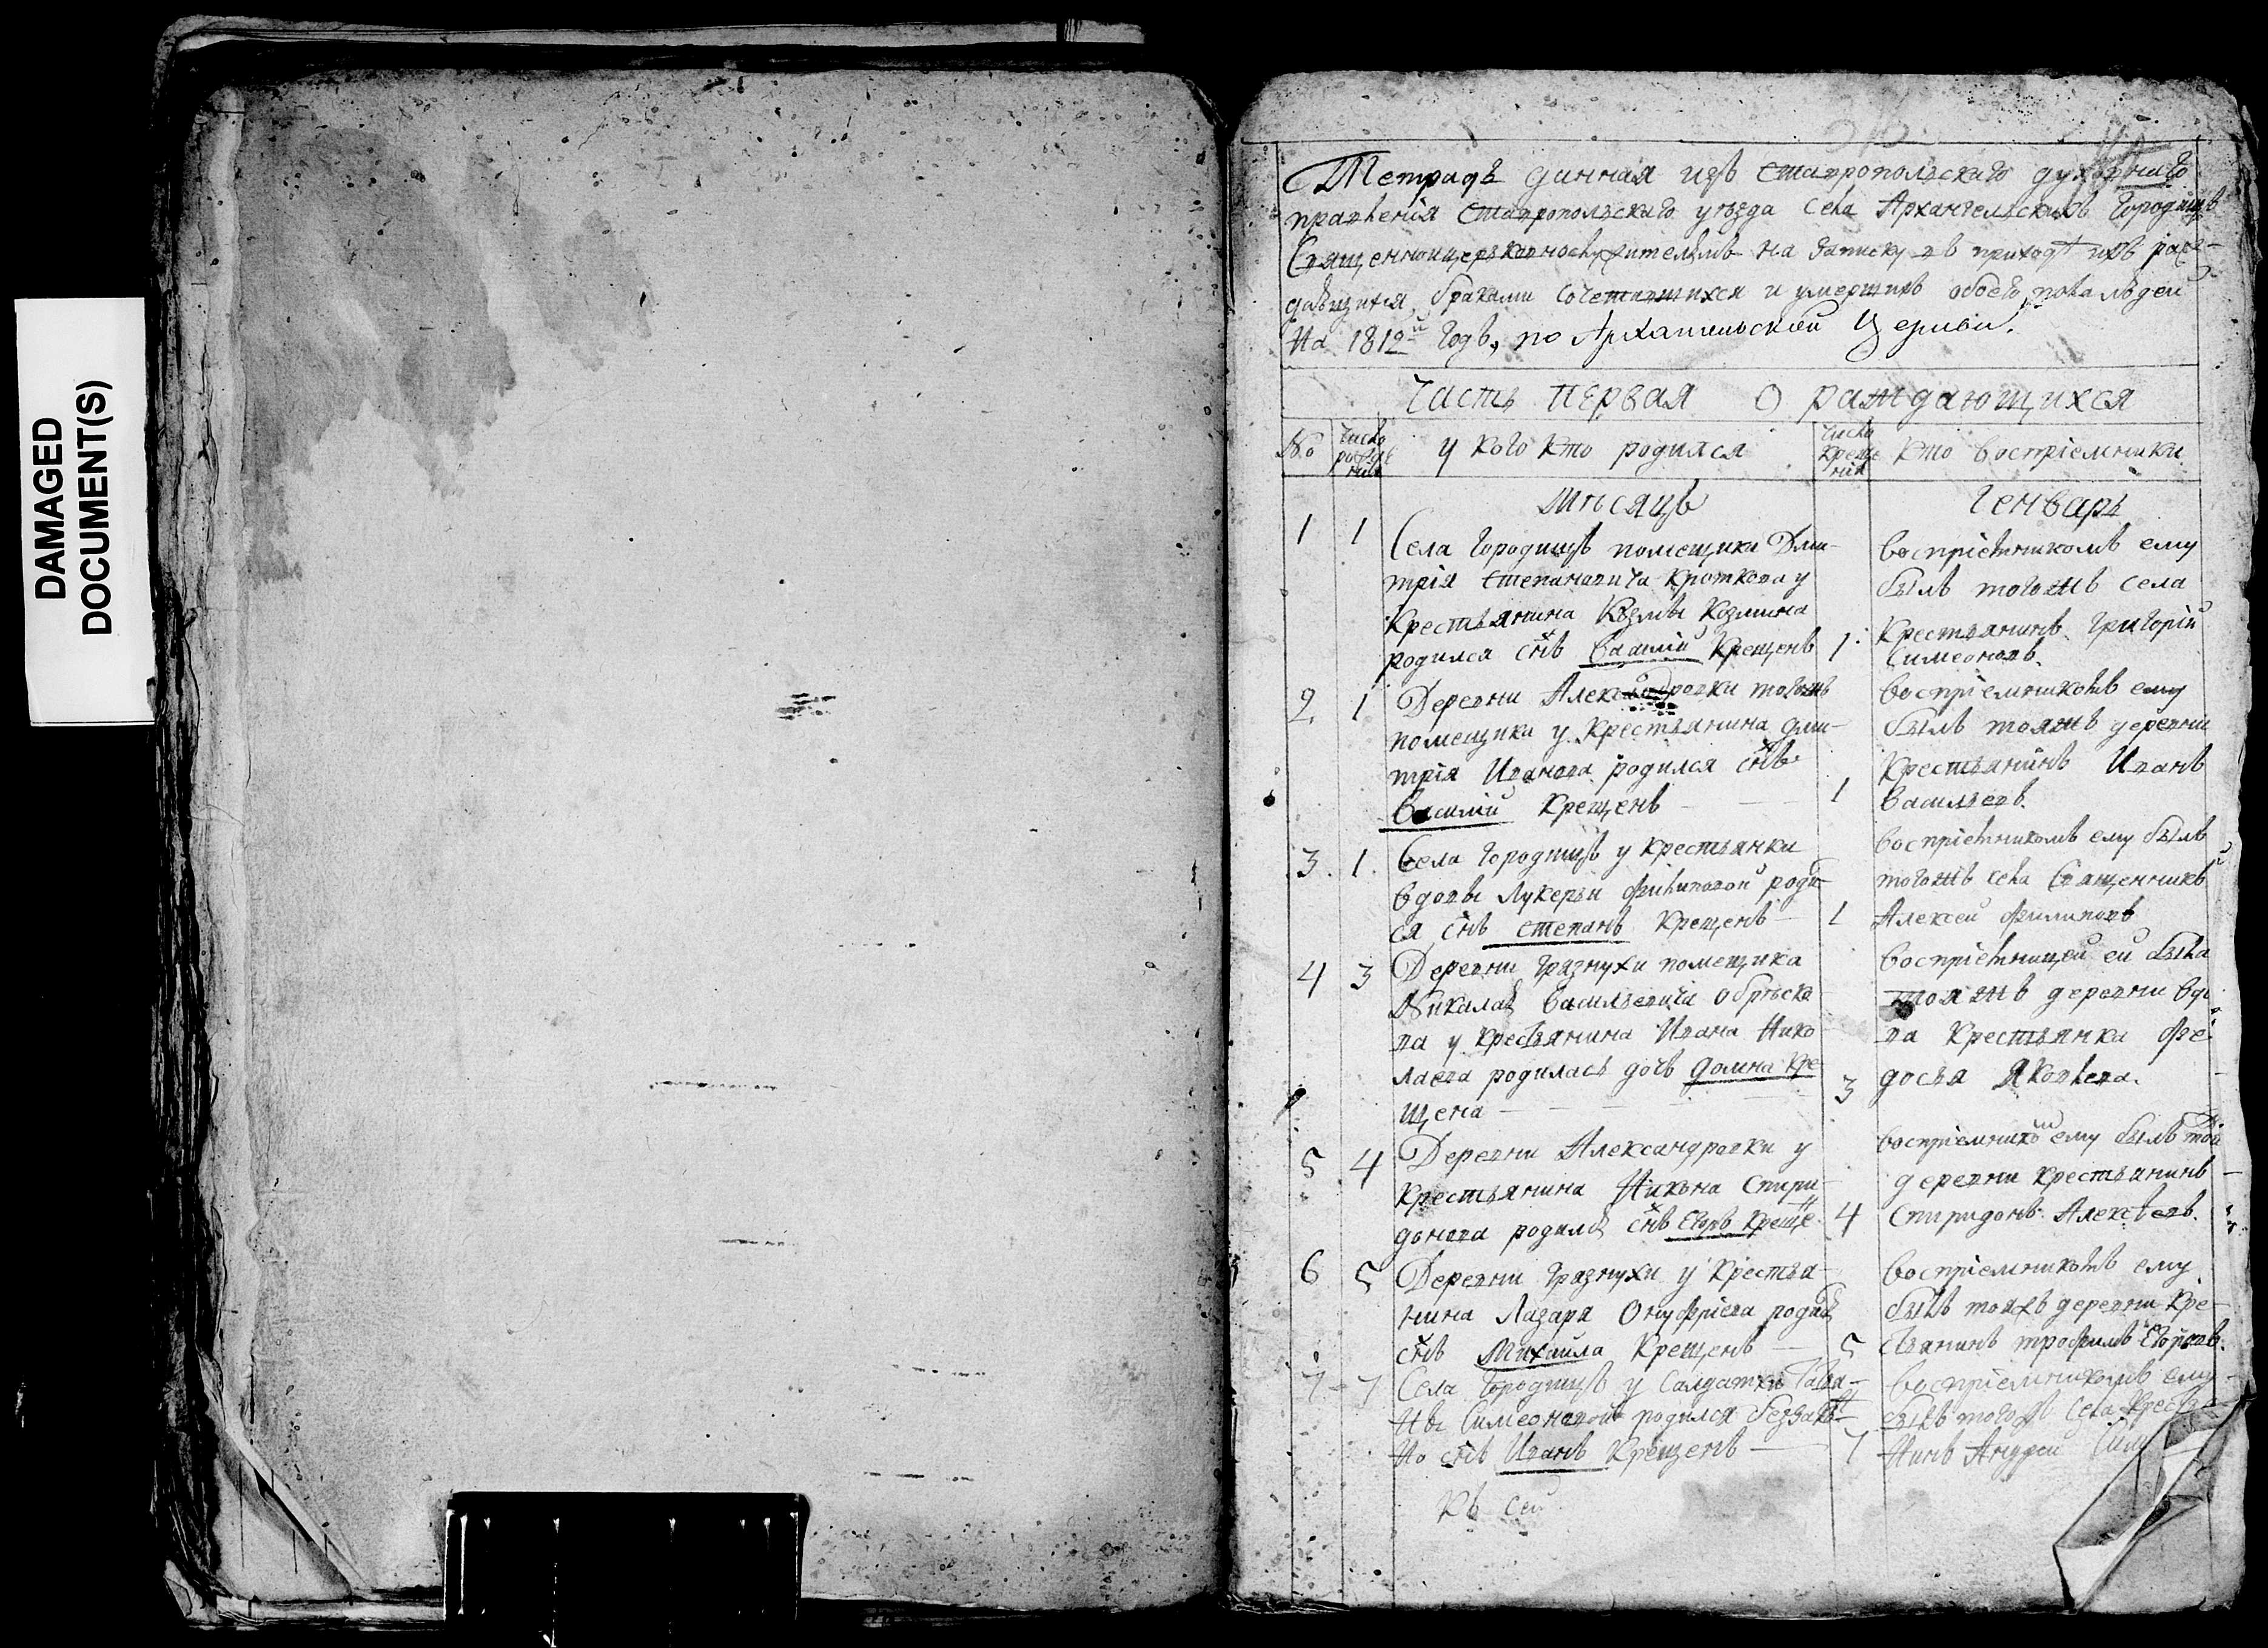 DAMAGED
DOCUMENT(S)
Тетрадь данная изъ Ставропольскаго духовнаго
правленія Ставропольскаго уѣзда села Архангельскихъ Городищъ
Священноцерковнослужителямъ на записку въ приходѣ ихъ раж-
дающихся, браками сочетавшихся и умершихъ обоего пола людей
На 1812й годъ, по Архангельской Церкви.
Часть первая О раждающихся
№ число рожде нія у кого кто родился число креще нія кто воспріемники
Мѣсяцъ Генварь
1 1 Села Городищъ помещика Дми-
трія Степановича Кроткова у
Крестьянина Козмы Козмина
родился снъ Василій Крещенъ 1
воспріемникомъ ему
былъ тогожъ села
Крестьянинъ Григорій
Симеоновъ.
2 1 Деревни Александровки тогожъ
помещика у Крестьянина Дми-
трія Иванова родился снъ
Василій Крещенъ 1
воспріемникомъ ему
былъ тояжъ деревни
Крестьянинъ Иванъ
Васильевъ.
3 1 Села Городищъ у крестьянки
вдовы Лукерьи Филиповой роди-
ся снъ Степанъ Крещенъ 1
воспріемникомъ ему былъ
тогожъ села Священникъ
Алексей Филиповъ
4 3 Деревни Грязнухи помещика
Николая Васильевича Обрѣско
ва у крестьянина Ивана Нико
лаева родилась дочь Домна Кре
щена 3
воспріемницей ей была
тояжъ деревни вдо
ва Крестьянка Фе
досья Яковлева.
5 4 Деревни Александровки у
Крестьянина Никона Спири-
донова родился снъ Егоръ Креще 4
воспріемником ему былъ той
деревни крестьянинъ
Спиридонъ Алексѣевъ.
6 5 Деревни Грязнухи у Крестья-
нина Лазаря Онуфріева родился
снъ Михаила Крещенъ 5
воспріемникомъ ему
былъ тояжъ деревни Кре-
стьянинъ Трофимъ Егоровъ.
7 7 Села Городищъ у Салдатки Татья-
ны Симеоновой родился беззакон-
но снъ Иванъ Крещенъ 7
воспріемникомъ ему
былъ тогожъ села Кресть
нинъ Андрей
Къ сей